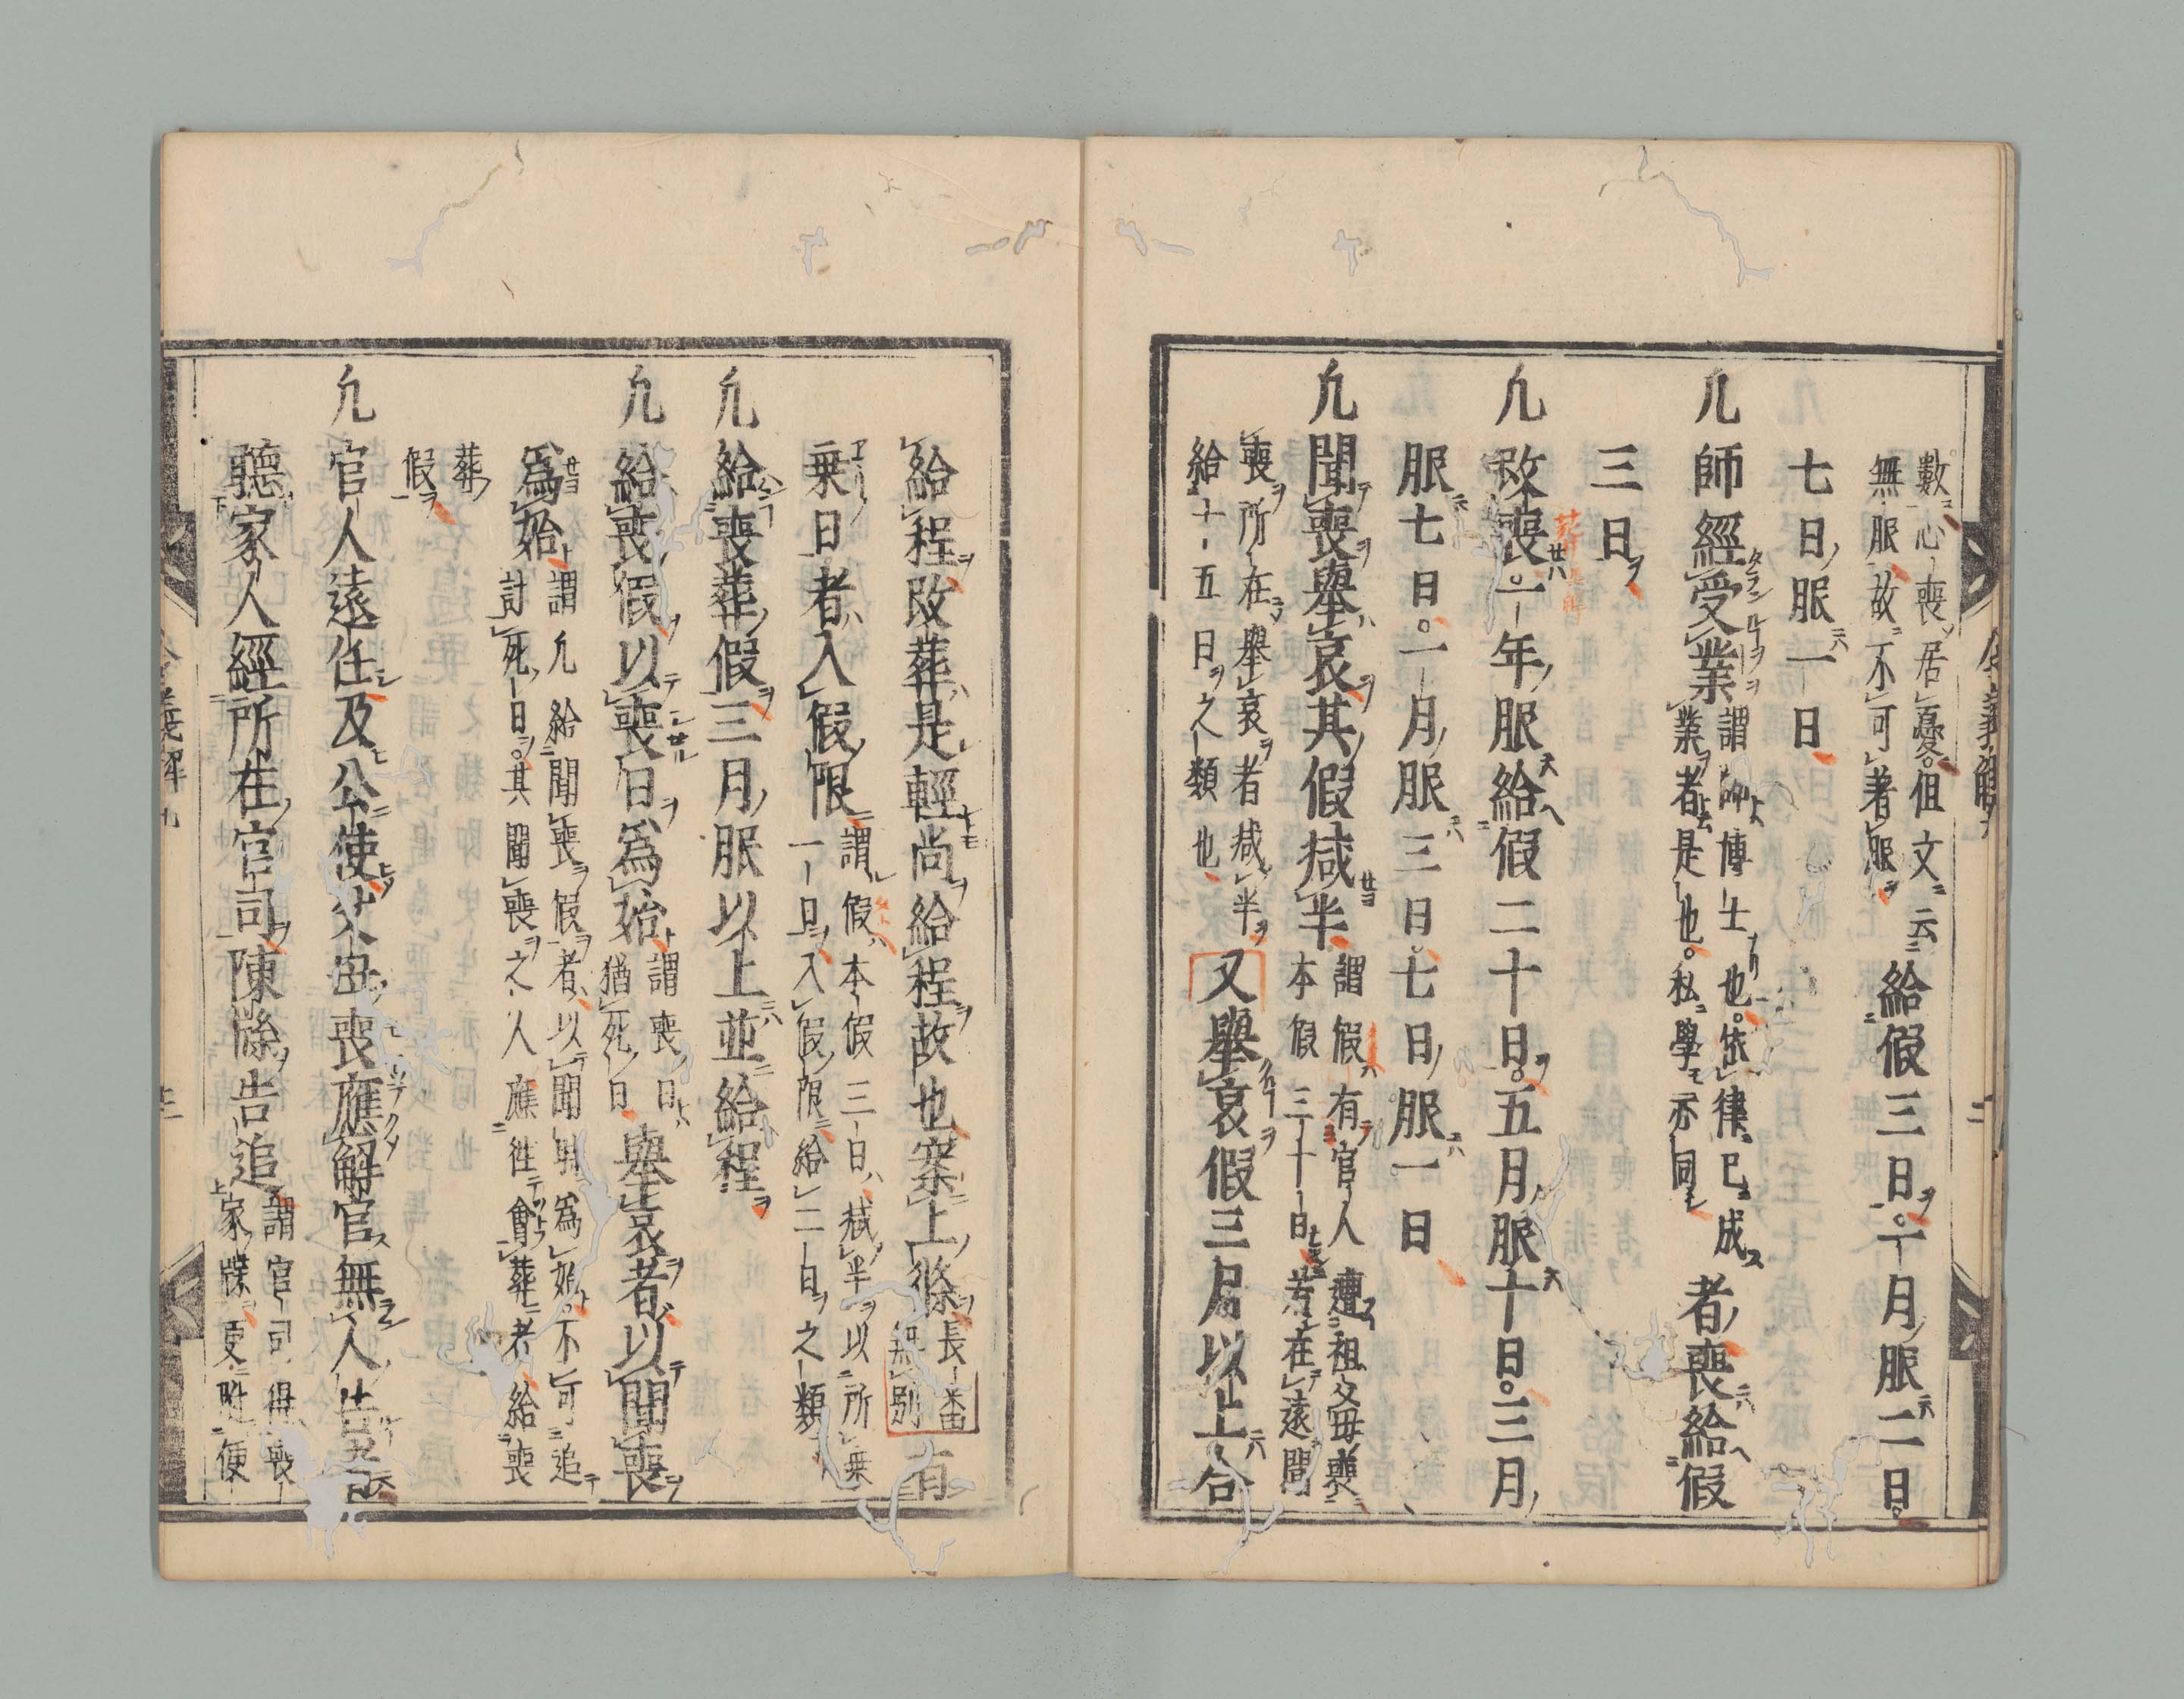 數心喪居憂但文云
無服故不可著服
給假三日一月服二日
七日服一日
凢師經受業
謂師博士也依律已成
業者是也私學亦同
者喪給假
三日
凢改喪一年服給假二十日五月服十日三月
服七日一月服三日七日服一日
凢聞喪舉哀其假减半
謂假有官人遭祖父母喪
本假三十日若在遠聞
喪所在舉哀者减半
給十五日之類也
又舉哀假三月以上合
給程改葬是輕尚給程故也案上條
長番
無別
有
乗日者入假限
謂假本假三日减半以所乗
一日入假限給二日之類
凢給喪葬假三月服以上並給程
凢給喪假以喪日爲始
謂喪日
猶死日
舉哀者以聞喪
爲始
謂凢給聞喪假者以聞喪爲始不可追
討死日其聞喪之人應徃會葬者給喪
葬
假
凢官人遠任及公使父母喪應解官無人告者
聽家人經所在官司陳牒告追
謂官司得喪
家牒更牒便
令義解九